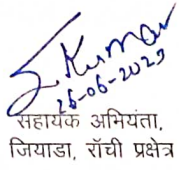 S. Kumar
26-06-2023
सहायक अभियंता,
जियाडा, राँची प्रक्षेत्र